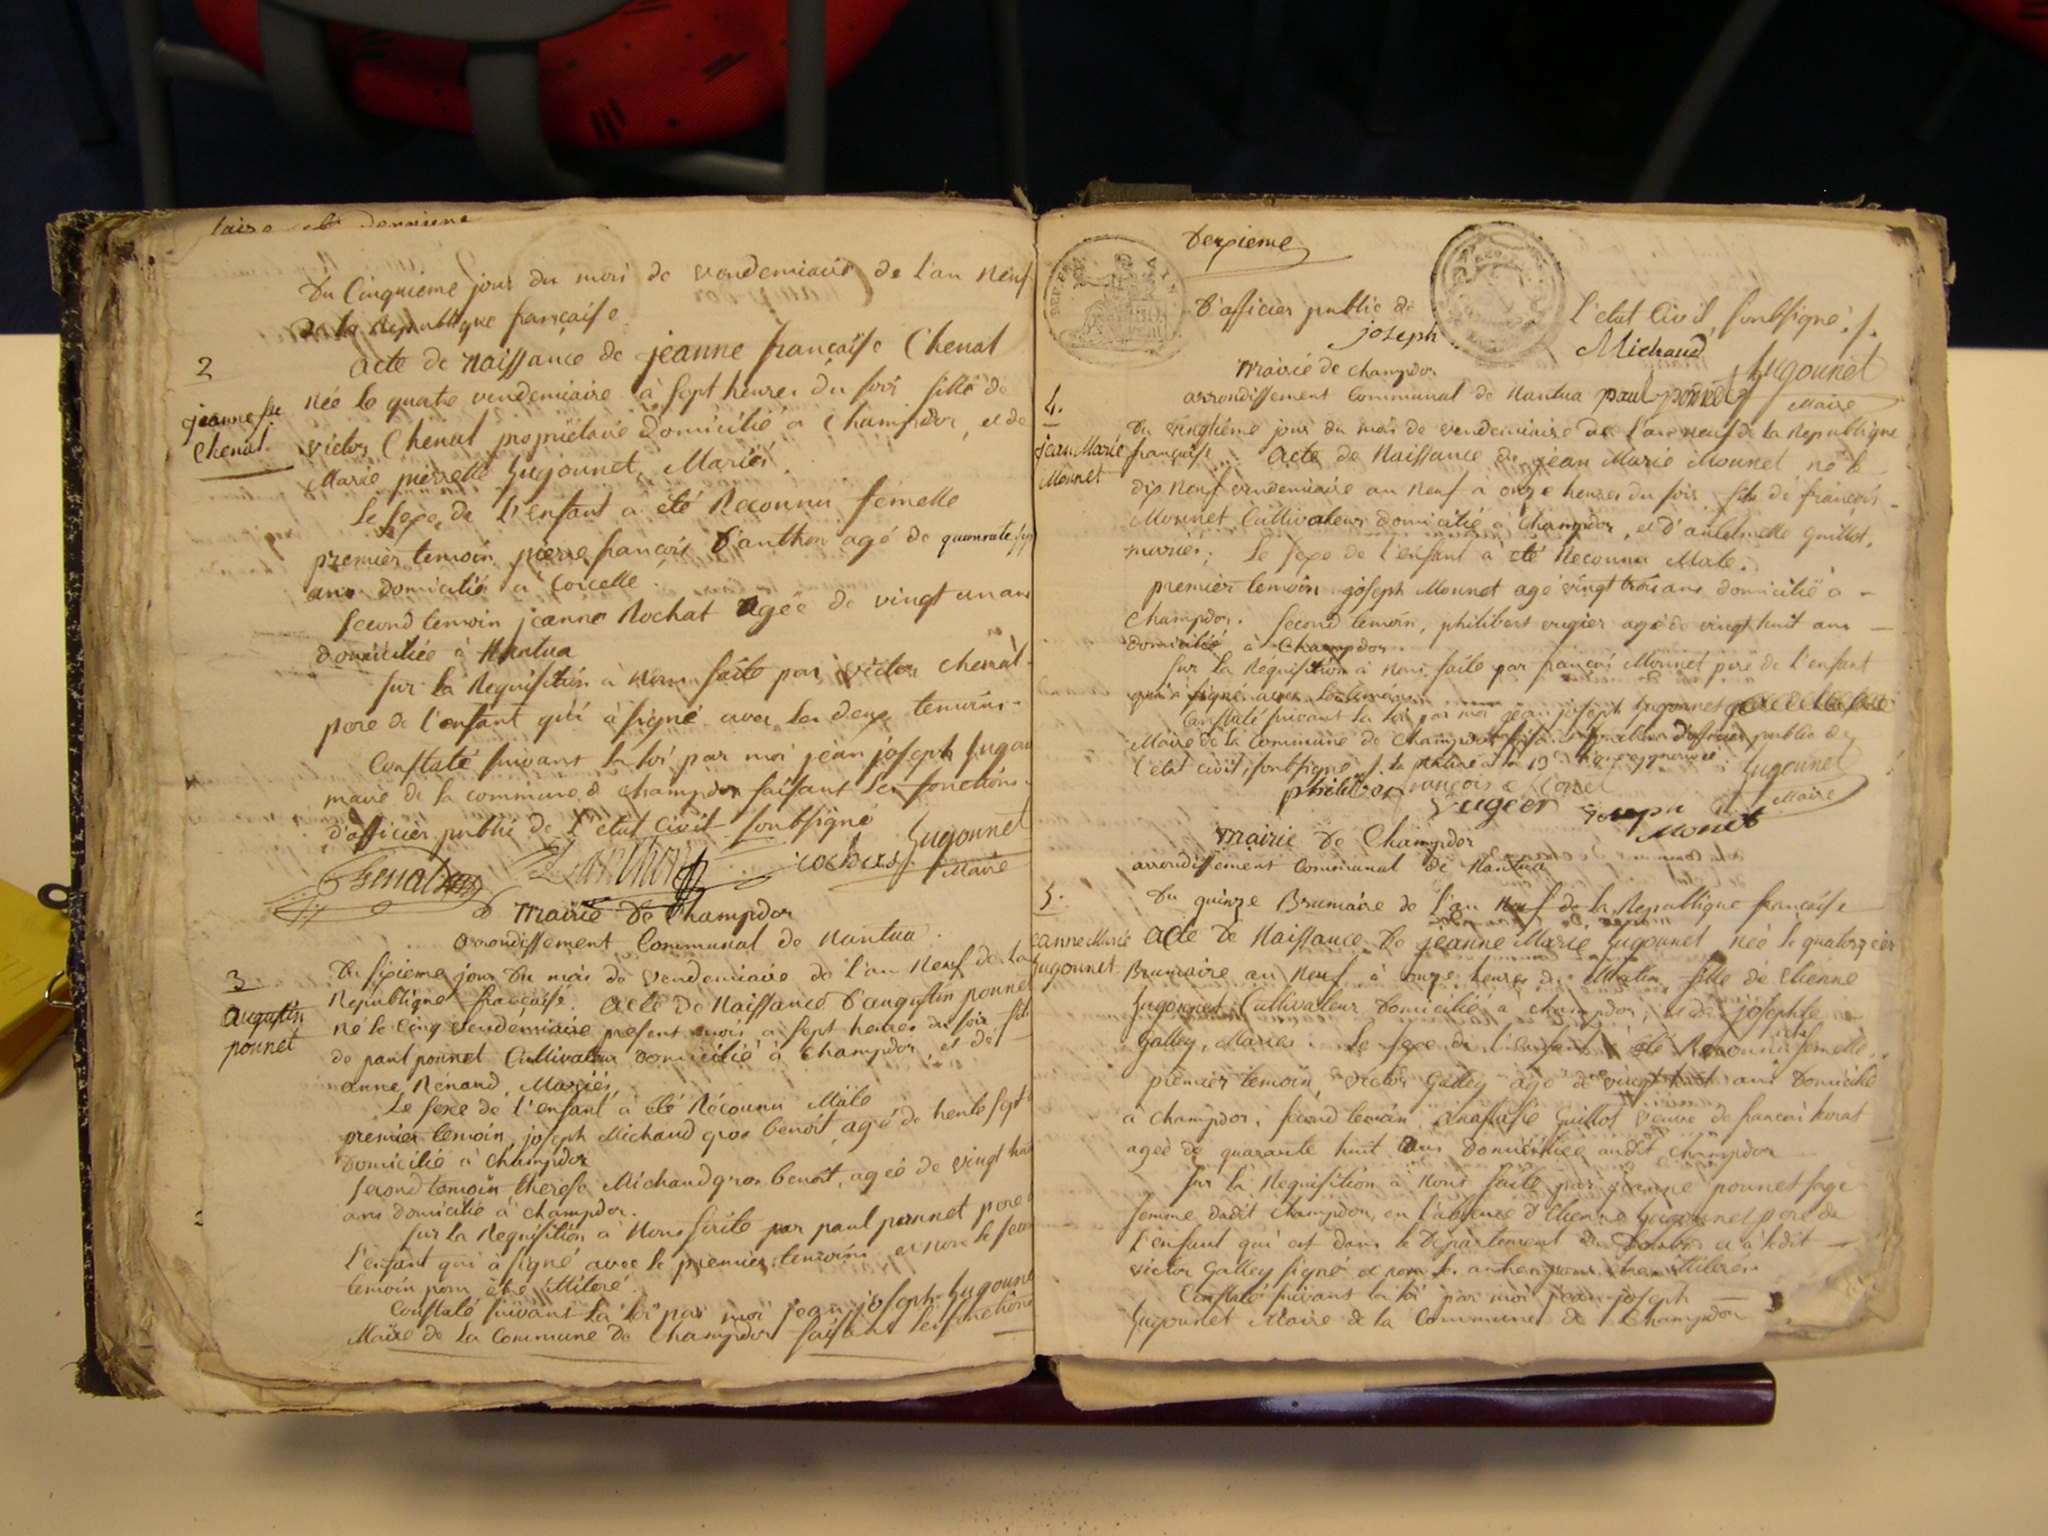 derniere
Du Cinquieme jour du mois de vendemiaire de l'an neuf
De la Republique française
2
acte de naissance de jeanne françaïse Chenat
jeanne fse
Chenat.
née le quatre vendemiaire à sept heures du soir fille de
victor Chenat propriétaire domicilié a Champdor, et de
Marie pierrette Jujounnet, Mariés.
Le sexe de l'enfant a été Reconnu femelle
premier temoin pierre françois D'anthon agé de
ans domicilié à Corcelle.
second temoin jeanne Rochat agée de vingt un ans
domiciliée à Nantua
sur la Requisition à nous faite par victor chenat
pere de l'enfant qui à signé avec les deux temoins.
Constaté suivant la loi par moi jean joseph
maire de la commune de champdor faisant les fonctions
d'officier public de l'etat Civil soubsigné
Jugounnet
Maire
mairie De Champdor
arrondissement Communal de Nantua.
3
augustin
ponnet
Du sixieme jour du mois de vendemiaire de l'an neuf de la
Republique française. acte de Naissance D'augustin ponnet
né le cinq vendemiaire present mois à sept heures du soir fils
de paul ponnet Cultivateur domicilié à champdor, et de
anne Renaud, Mariés,
Le sexe de l'enfant à été Reconnu Mâle
premier temoin, joseph Michaud gros benoit, agé de trente sept
Domicilié à champdor
second temoin therese Michaud gros benoit, agée de vingt huit
ans domicilié à champdor.
sur la Requisition à Nous faite par paul ponnet pere
l'enfant qui à signé avec le premier temoin et non le second
temoin pour être illiteré.
Constaté suivant la loi par moi jean joseph Jugounnet
Maire de la Commune De Champdor faisant les fonctions
Deuxieme
D'officier public de l'etat Civil, soubsigné.
joseph Michaud
Jugounet
Maire
mairie de champdor
arrondissement Communal de Nantua paul ponnet
4.
jean Marie
Monnet
Du vingtième jour du mois de vendemiaire de l'an neuf de la Republique
française. Acte de Naissance de jean Marie Monnet né le
dix neuf vendemiaire an neuf à onze heures du soir fils de françois
Monnet Cultivateur domicilié à Champdor, et D'antelmette Guillot,
mariés; Le sexe de l'enfant à été Reconnu Male.
premier temoin joseph Monnet agé vingt trois ans domicilié à
Champdor. second temoin, philibert vugier agé de vingt huit ans
domicilié à Champdor.
sur la Requisition à Nous faite par françois Monnet pere de l'enfant
qui à signé avec les temoins
Constaté suivant la loi par moi jean joseph Jugounnet
Maire de la commune de champdor faisant fonctions D'officier public de
l'etat civil, soubsigné
philibert françois Monet
vugier joseph Monet
Jugounet
Maire
mairie De Champdor
arrondissement Communal de Nantua
5.
jeanne Marie
Jugounnet
Du quinze Brumaire de l'an Neuf de la Republique française
acte De Naissance De jeanne Marie Jugounnet, née le quatorze
Brumaire an Neuf à onze heures du Matin fille de Etienne
Jugounnet Cultivateur Domicilié à champdor, et de josephte
Galley, Mariés. Le sexe de l'enfant à été Reconnu femelle.
premier temoin, victor Galley agé de vingt huit ans Domicilié
à champdor. second temoin, anastasie Guillot veuve de françois
ageé de quarante huit ans Domiciliée audit Champdor
sur la Requisition à Nous faite par jeanne ponnet sage
femme dudit Champdor, en l'absence d'Etienne Jugounnet pere de
l'enfant qui est dans le Département du et à ledit
victor Galley signé et non les autres pour être illiteré.
Constaté suivant la loi par moi jean joseph
Jugounet Maire de la Commune de Champdor